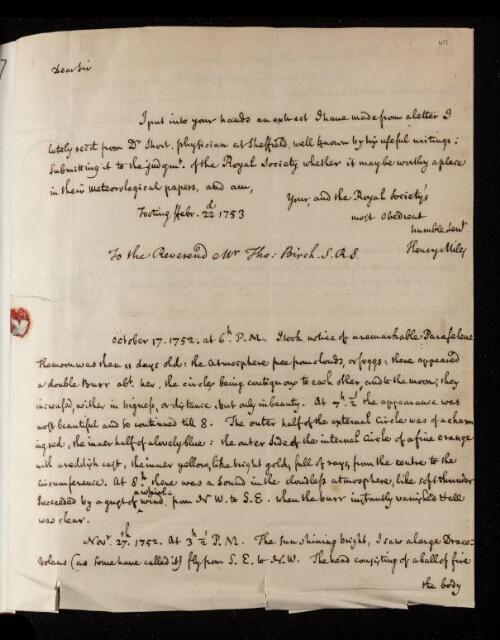 Dear Sir
I put into your hands an extract I have made from a letter I
lately rec'd from Dr Short, physician at Sheffield, well known by his useful writings:
submitting it to the judgmt. of the Royal Society whether it may be worthy a place
in their meteorological papers, and am,
Your, and the Royal Society's
Tooting Febr. 22d 1753
most Obedient
humble Servt
Henry Miles
To the Reverend Mr Tho: Birch. S.R.S.
October 17. 1752. at 6h P.M. I took notice of a remarkable Paraselene
the moon was then 11 days old: the atmosphere free from clouds, or foggs: there appeared
a double Burr abt. her, the circles being contiguous to each other, and to the moon; they
increased, neither in bigness, or distance, but only in beauty. At 7h ½ the appearance was
most beautiful and so continued till 8. The outer half of the external circle was of a charm
ing red, the inner half of a lovely blue: the outer side of the internal Circle of a fine orange
with a reddish cast, the inner yellow, like bright gold, full of rays, from the centre to the
circumference. At 8h there was a sound in the cloudless atmosphere, like soft thunder
succeeded by a gust of whirl=wind, from N.W. to S.E. when the burr instantly vanished & all
was clear.
Novr. 27th. 1752. At 3h ½ P.M. The sun shining bright, I saw a large Draco-
volans (as some have called it) fly from S.E. to N.W. The head consisting of a ball of fire
the body